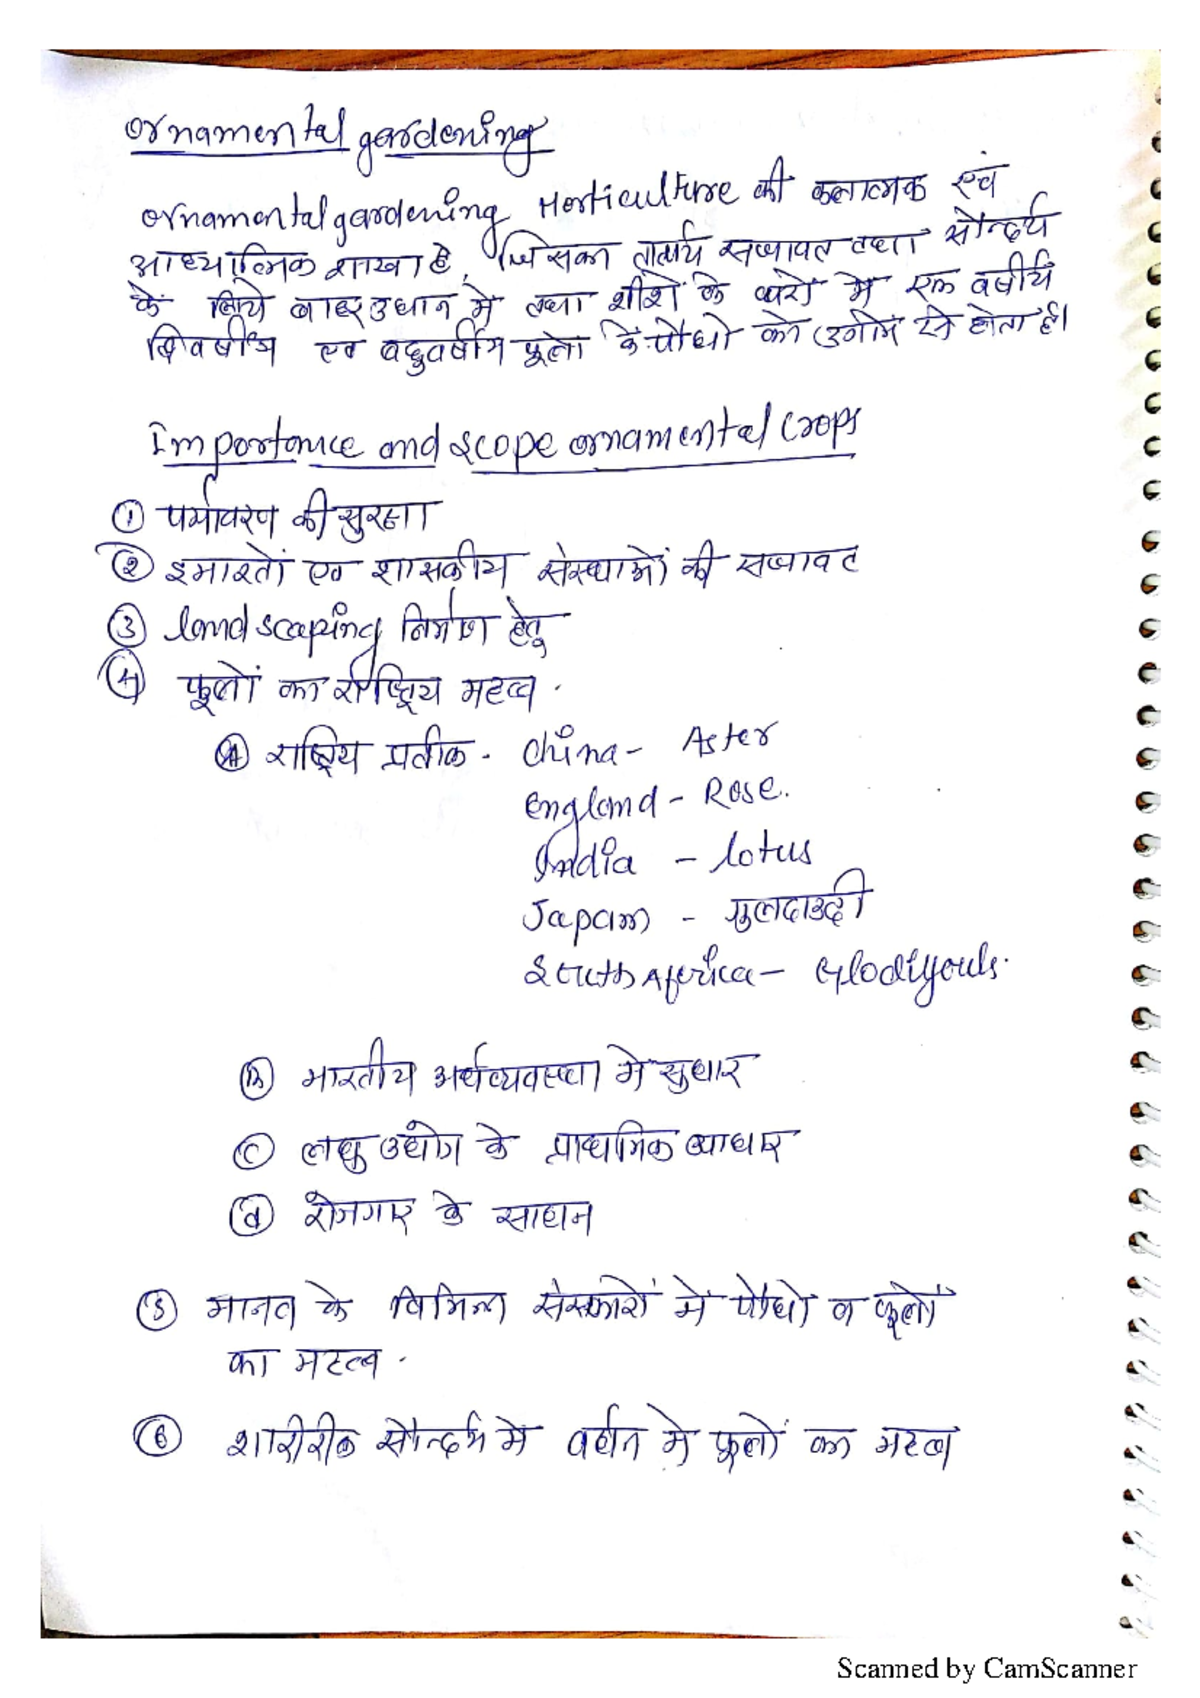 Ornamental gardening
Ornamental gardening Horticulture की कलात्मक एवं
आध्यात्मिक शाखा है, जिसका तात्पर्य सजावट तथा सौन्दर्य
के लिये बाहर उधान मे तथा शीशे के घरो मे एक वर्षीय
द्विवर्षीय एव बहुवर्षीय फूलो के पौधो को उगाने से होता है।
Importance and Scope ornamental Crops
① पर्यावरण की सुरक्षा
② इमारतों एव शासकीय संस्थाओं की सजावट
③ landscaping निर्माण हेतु
④ फूलों का राष्ट्रिय महत्व .
Ⓐ राष्ट्रिय प्रतीक - China - Aster
England - Rose.
India - lotus
Japan - गुलदाउदी
South Africa - Glodiyouls.
Ⓑ भारतीय अर्थव्यवस्था मे सुधार
Ⓒ लघु उधोग के प्राथमिक व्याधार
ⓓ रोजगार के साधन
⑤ मानव के विभिन्न संस्कारों में पौधो व फूलों
का महत्व .
⑥ शारीरिक सौन्दर्य मे वर्धन मे फूलों का महत्व
Scanned by CamScanner